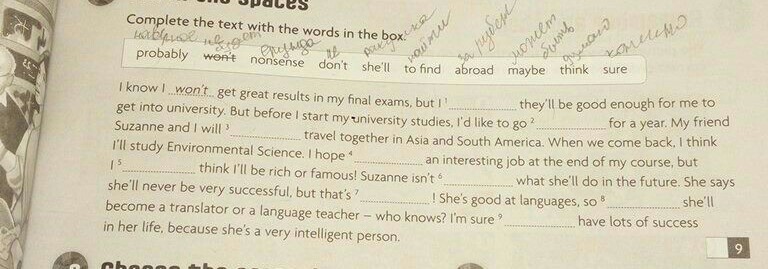 Complete the text with the words in the box.
не будет ерунда не найти за рубеж может быть думаю
probably won't nonsense don't she'll to find abroad maybe think sure
I know I won't get great results in my final exams, but I ¹ they'll be good enough for me to
get into university. But before I start my university studies, I'd like to go ² for a year. My friend
Suzanne and I will ³ travel together in Asia and South America. When we come back, I think
I'll study Environmental Science. I hope ⁴ an interesting job at the end of my course, but
I ⁵ think I'll be rich or famous! Suzanne isn't ⁶ what she'll do in the future. She says
she'll never be very successful, but that's ⁷ ! She's good at languages, so ⁸ she'll
become a translator or a language teacher – who knows? I'm sure ⁹ have lots of success
in her life, because she's a very intelligent person.
9